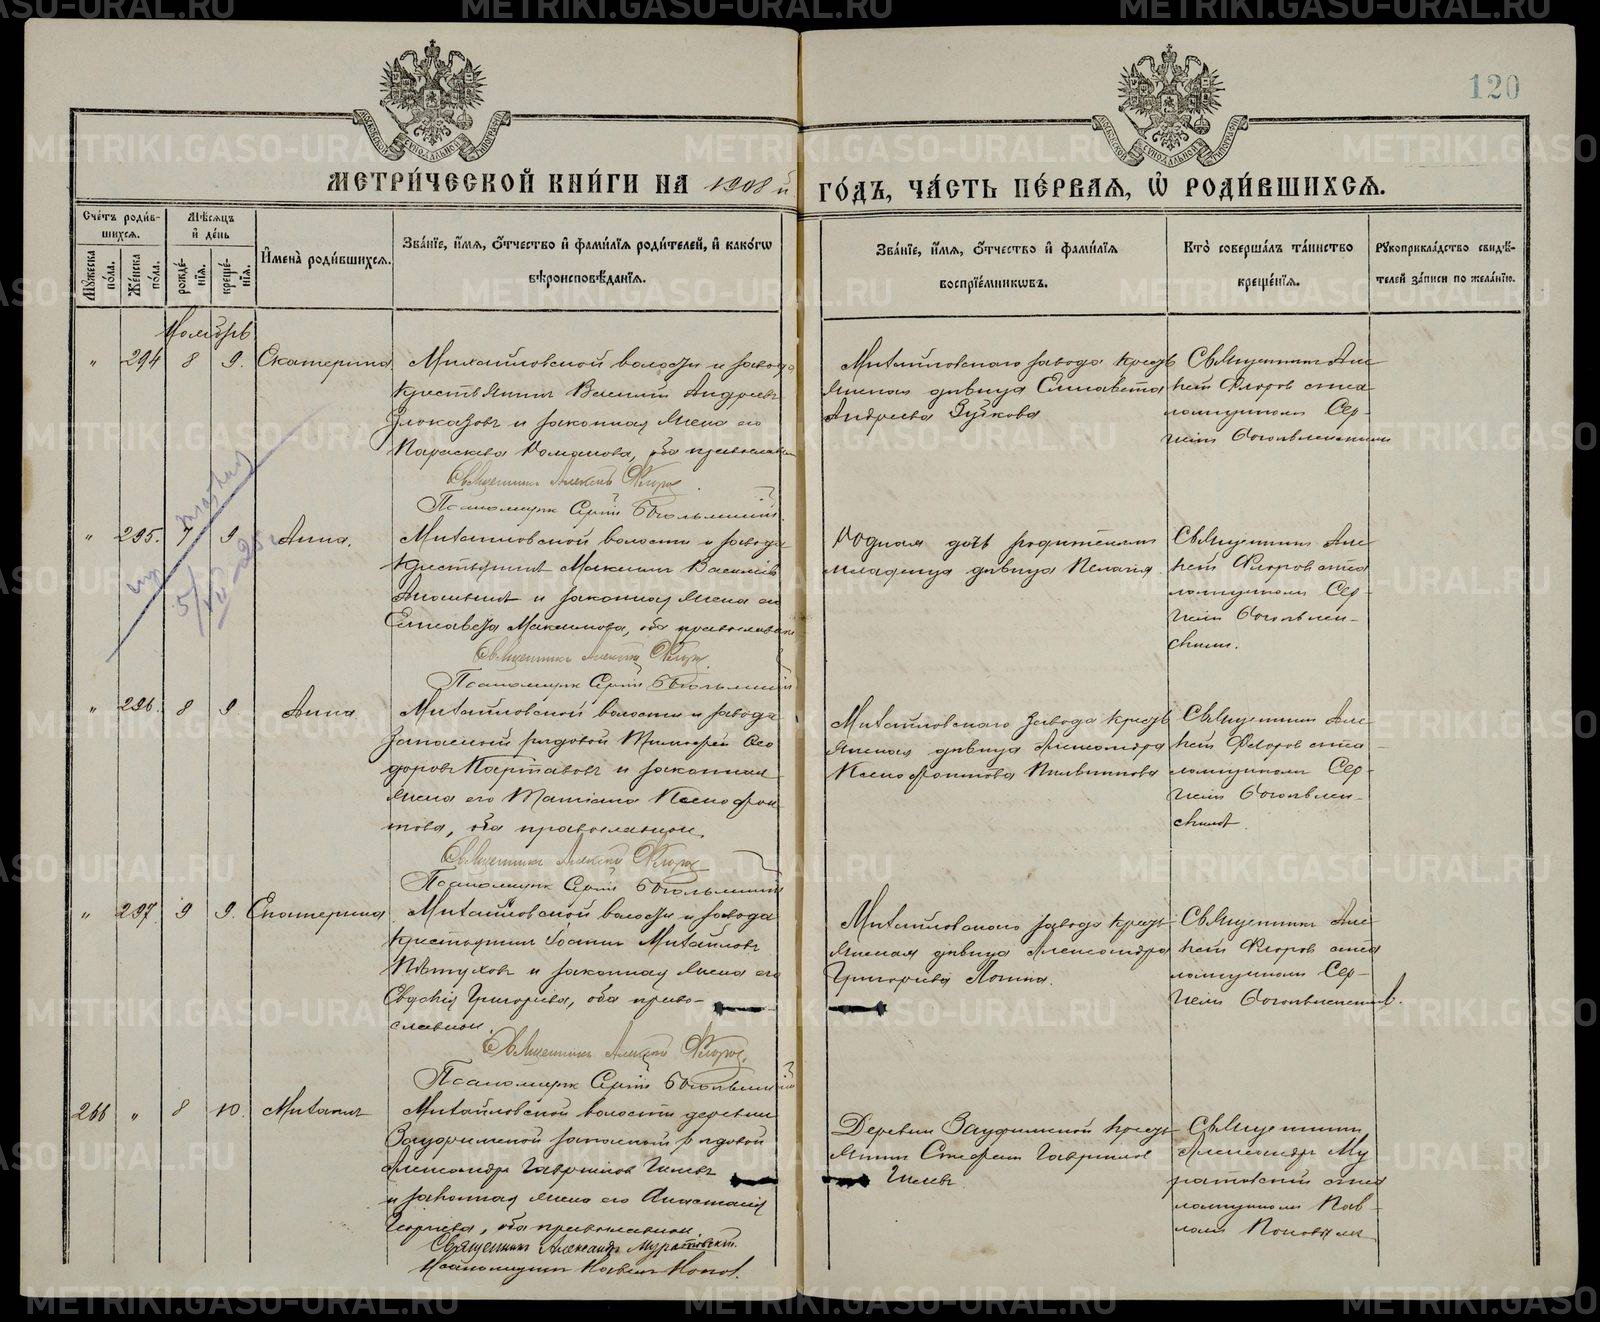 120
МЕТРИ́ЧЕСКОЙ КНИ́ГИ НА 1908 й ГО́ДЪ, ЧА́СТЬ ПЕ́РВАЯ, Ѡ҆ РОДИ́ВШИХСЯ.
Сче́тъ роди́вшихся.
Мѣ́сяцъ и҆ де́нь
Му́жеска по́ла.
Же́нска по́ла.
рожде́нїя.
креще́нїя.
И҆мена̀ роди́вшихся.
Зва́нїе, и҆́мя, ѻ҆́тчество и҆ фами́лїя роди́телей, и҆ како́гѡ
вѣроисповѣ́данїя.
Зва́нїе, и҆́мя, ѻ҆́тчество и҆ фами́лїя
воспрїе́мникѡвъ.
Кто̀ соверша́лъ та́инство
креще́нїя.
Рꙋкоприкла́дство свидѣ́-
телей за́писи по жела́нїю.
Ноябрь
" 294 8 9. Екатерина
Михайловской волости и завода
крестьянинъ Василій Андреевъ
Злоказовъ и законная жена его
Параскева Романова, оба православн
Священникъ Алексѣй Флоров
Псаломщик Сергій
Михайловскаго завода кресть
янская дѣвица Елисавета
Андреева Зуйкова
Священник Але
ксѣй Флоров съ пса
ломщиком Сер-
гіем Богоявленским
" 295. 7 9 Анна.
Михайловской волости и завода
крестьянинъ Максимъ Васильев
и законная жена его
Елисавета Максимова, оба православные
Священникъ Алексѣй Флоров
Псаломщик Сергій
Родная дочь родителей
младенца дѣвица Пелагія
Священник Але
ксѣй Флоров съ пса
ломщиком Сер-
гіем Богоявлен-
ским.
" 296. 8 9 Анна
Михайловской волости и завода
Запасный рядовой Тимофей Ѳео
доровъ Картавовъ и законная
жена его Татіана Ксенофон
това, оба православные.
Священникъ Алексѣй Флоров
Псаломщик Сергій
Михайловскаго завода кресть
янская дѣвица Александра
Ксенофонтова
Священник Але
ксѣй Флоров съ пса
ломщиком Сер-
гіем Богоявлен-
ским
" 297. 9 9. Екатерина
Михайловской волости и завода
крестьянин Іоаннъ Михайловъ
Пѣтуховъ и законная жена его
Евдокія Григоріева, оба право-
славные.
Священникъ Алексѣй Флоров.
Псаломщик Сергій
Михайловскаго завода кресть
янская дѣвица Александра
Григоріева
Священник Але
ксѣй Флоров съ пса
ломщиком Сер-
гіем Богоявленским.
266 " 8 10. Михаилъ
Михайловской волости деревни
Зауфимской запасный рядовой
Александръ Гавриилов Гилевъ
и законная жена его Анастасія
Георгіева, оба православные.
Священникъ Александръ Муратовскій.
Псаломщикъ Павелъ Попов.
Деревни Зауфимской кресть
янин Стефан Гавриилов
Гилевъ.
Священник
Александръ Му
ратовскій съ пса
ломщиком Пав-
лом Поповым
METRIKI.GASO-URAL.RU